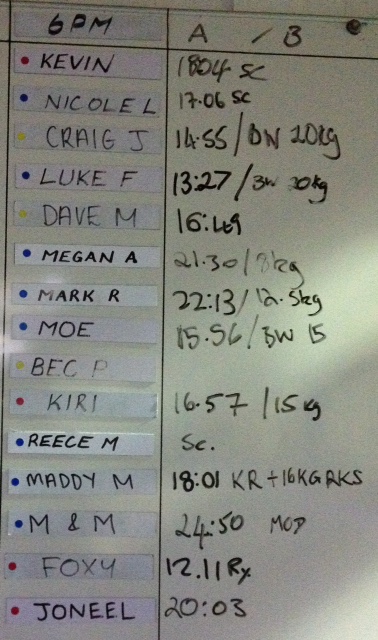 6PM A / B
KEVIN 1804 SC
NICOLE L 17.06 SC
CRAIG J 14.55 / BW 20kg
LUKE F 13:27 / BW 20kg
DAVE M 16:49
MEGAN A 21.30 / 8kg
MARK R 22:13 / 12.5kg
MOE 15.56 / BW 15
BEC P
KIRI 16.57 / 15kg
REECE M SC.
MADDY M 18:01 KR + 16KG RKS
M & M 24:50 MOD
FOXY 12.11 Rx
JONEEL 20:03